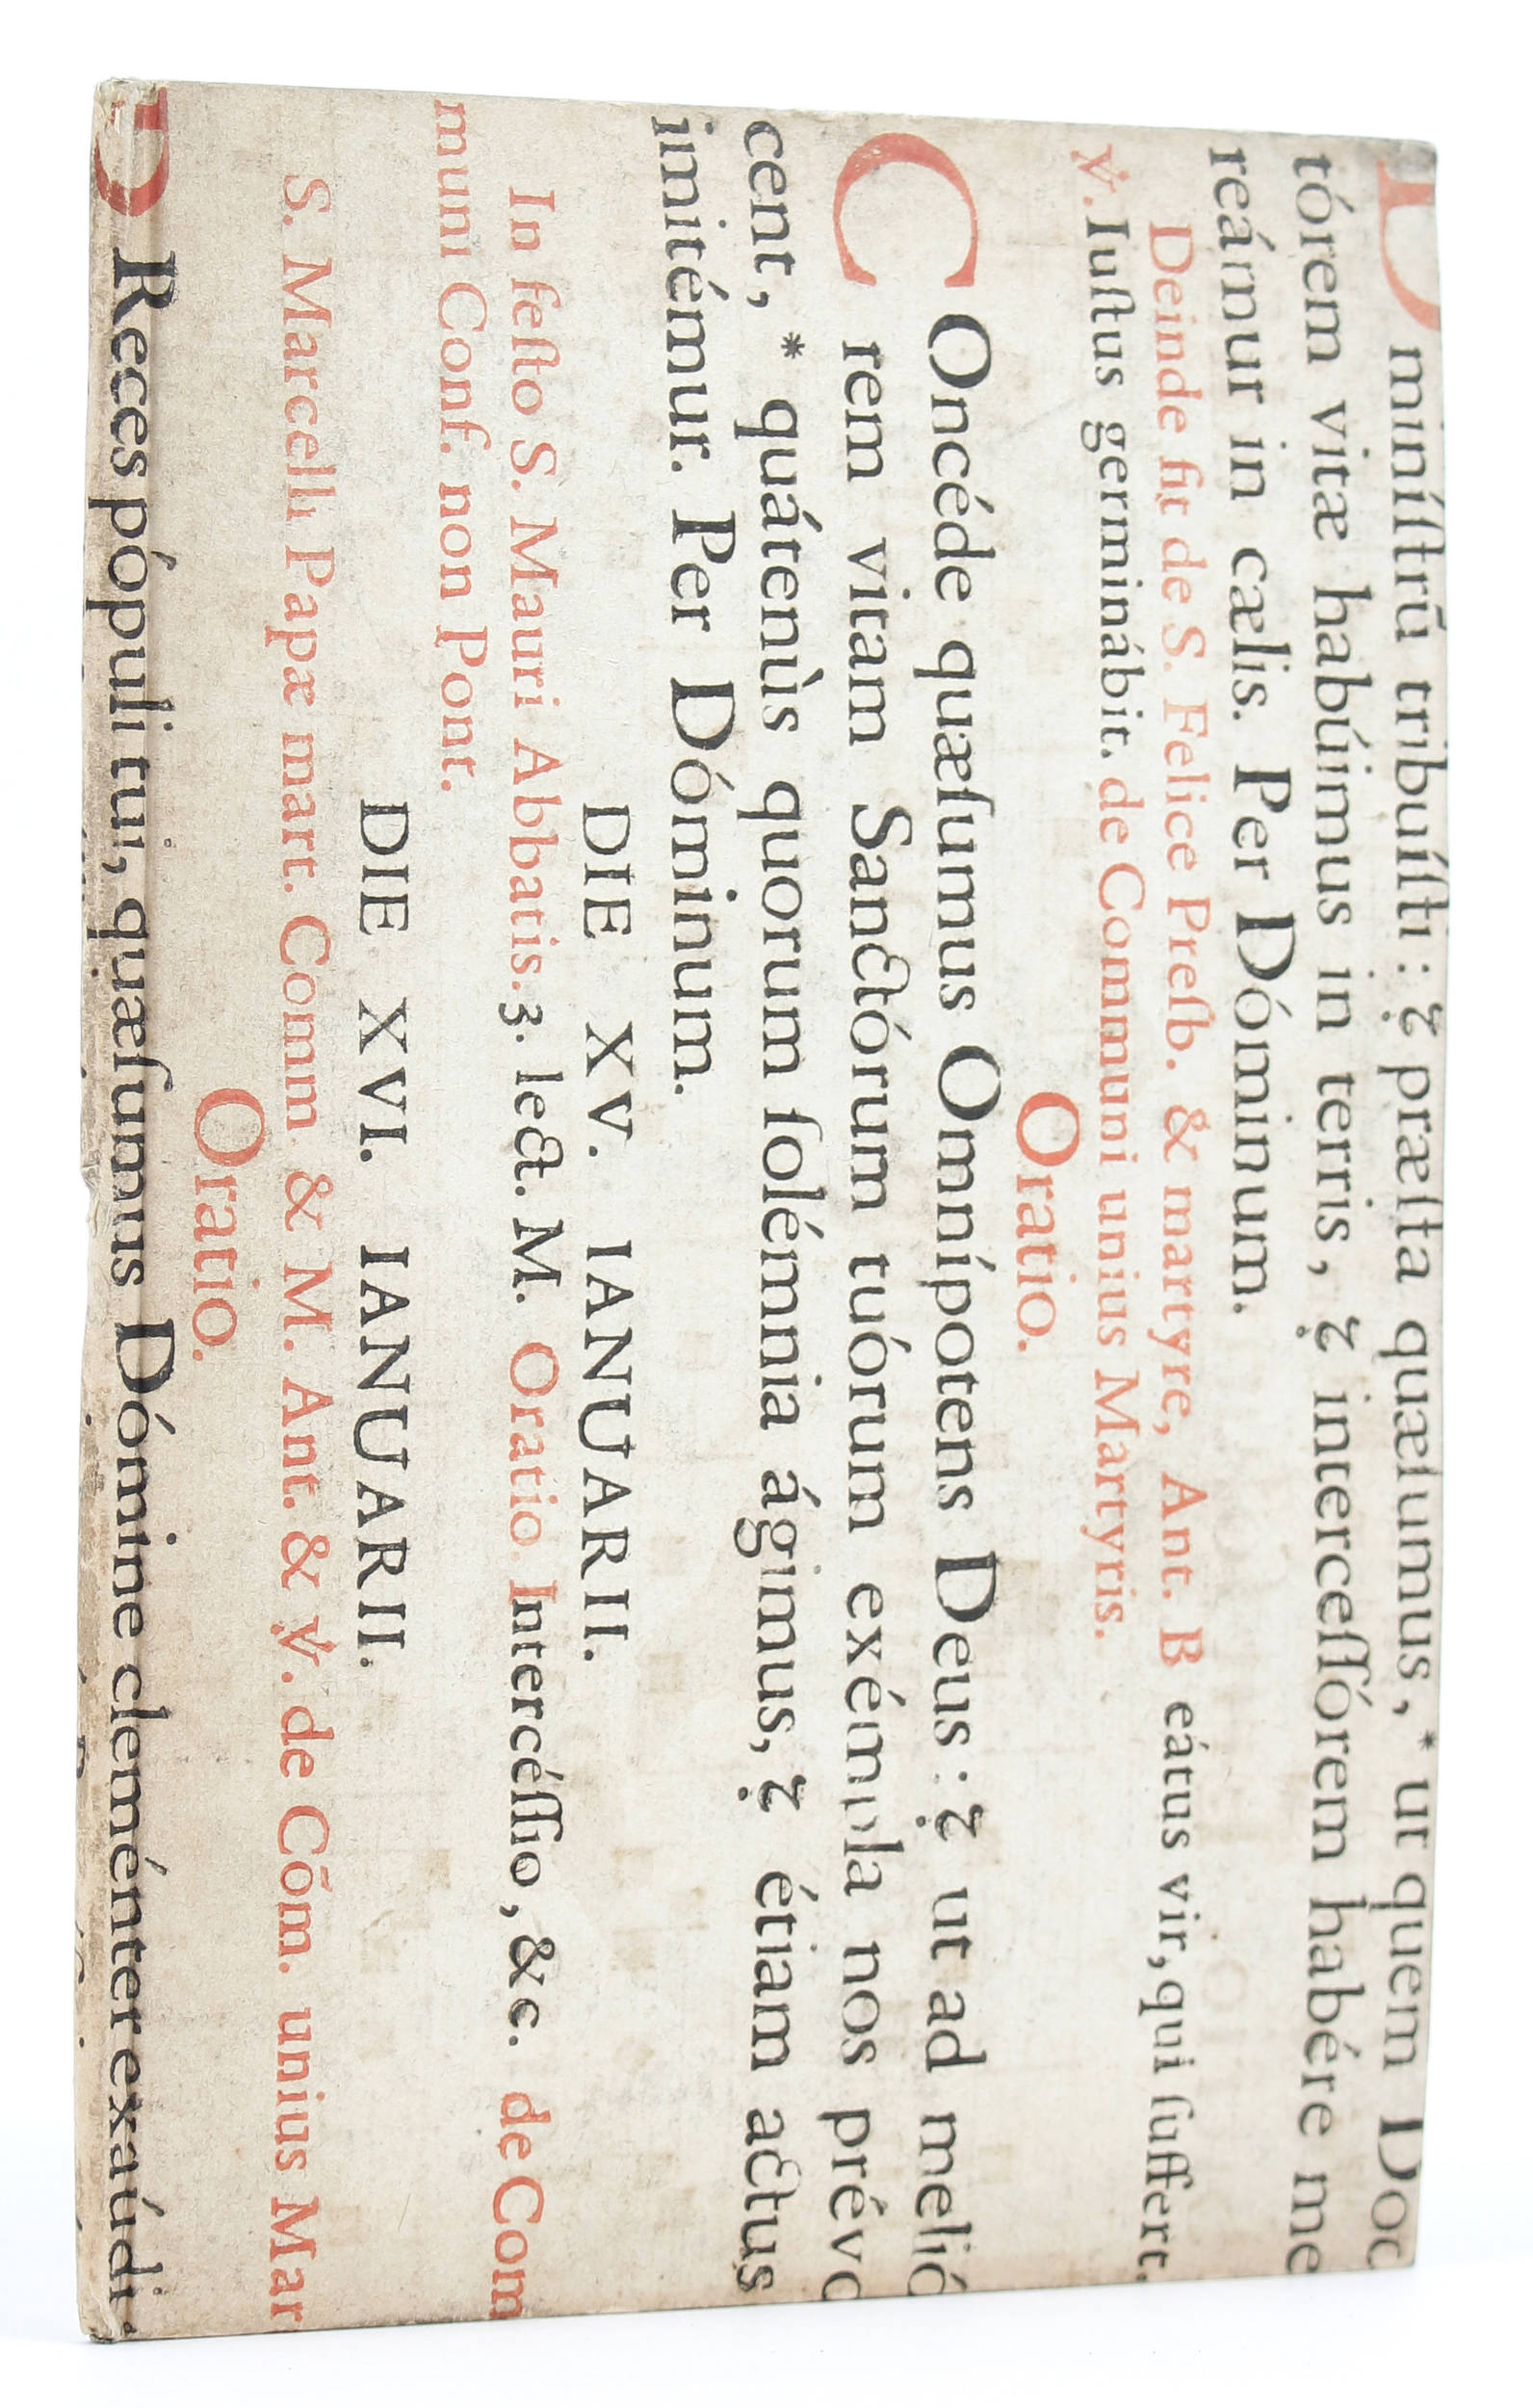 D miníſtrũ tribuíſti : & præſta quæſumus, * ut quem Doc
tórem vitæ habúimus in terris, & interceſſórem habére me
reámur in cælis. Per Dóminum.
Deinde fit de S. Felice Preſb. & martyre, Ant. B eátus vir, qui ſuffert.
℣. Iuſtus germinábit. de Communi unius Martyris.
Oratio.
COncéde quæſumus Omnípotens Deus : & ut ad melió
rem vitam Sanctórum tuórum exémpla nos prévo
cent, * quátenùs quorum ſolémnia ágimus, & étiam actus
imitémur. Per Dóminum.
DIE XV. IANUARII.
In feſto S. Mauri Abbatis. 3. lect. M. Oratio Intercéſſio, &c. de Com
muni Conf. non Pont.
DIE XVI. IANUARII.
S. Marcelli Papæ mart. Comm & M. Ant. & ℣. de Cõm. unius Mar
Oratio.
PReces pópuli tui, quæſumus Dómine cleménter exaúdi.